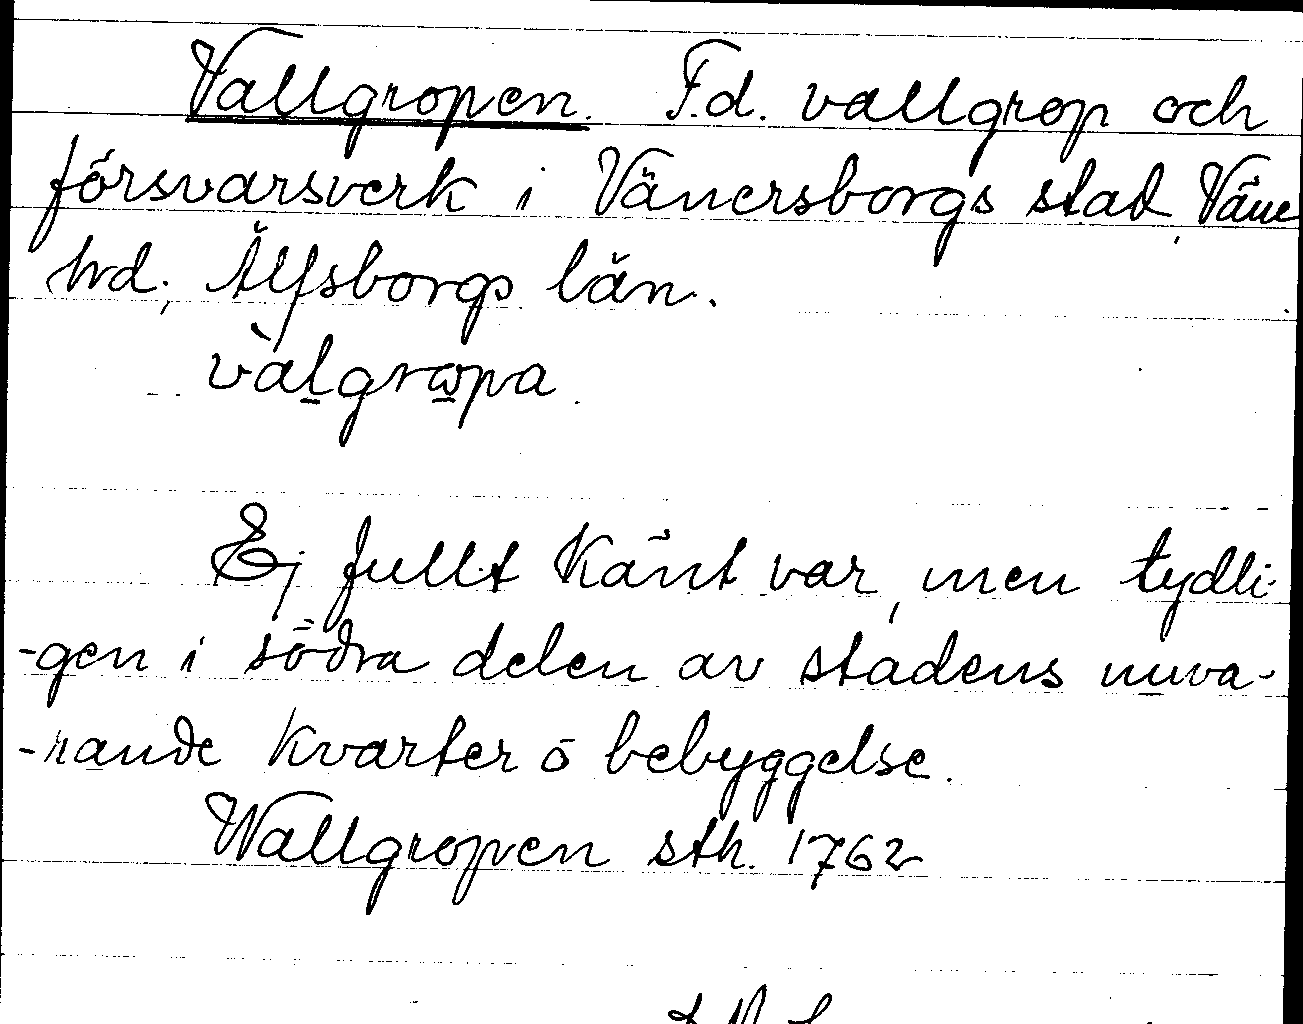 Vallgropen. F.d. vallgrop och
försvarsverk i Vänersborgs stad, Väne
hrd; Älfsborgs län.
va̍lgrɷpa
Ej fullt känt var, men tydli-
-gen i södra delen av stadens nuva-
-rande kvarter o bebyggelse.
Wallgropen sth. 1762